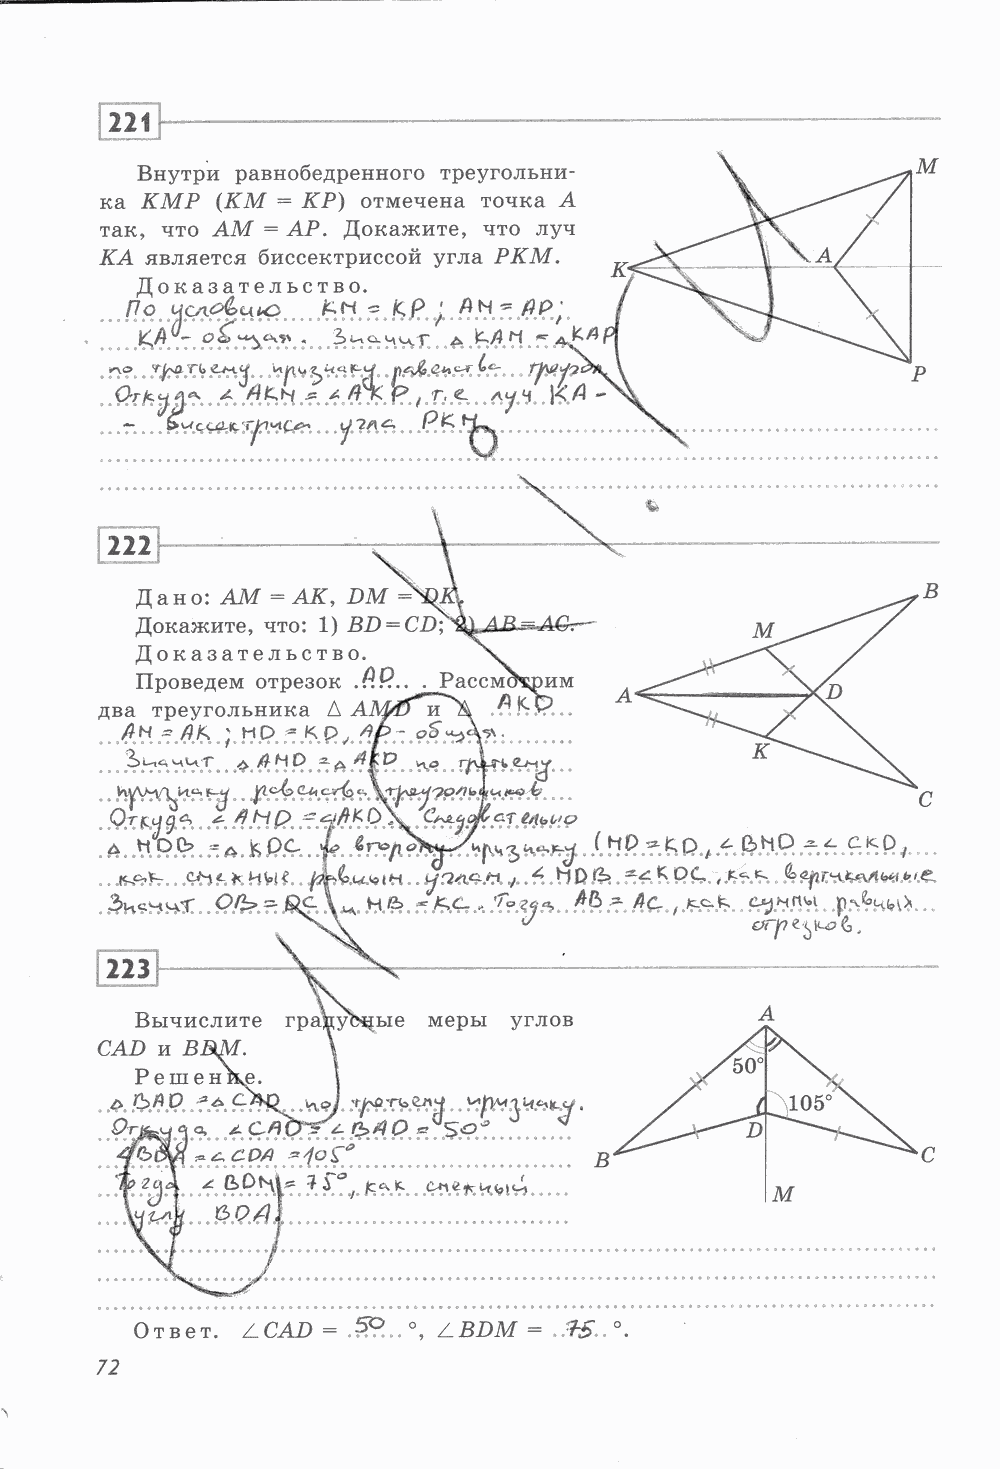 221
Внутри равнобедренного треугольни-
ка KMP (KM = KP) отмечена точка A
так, что AM = AP. Докажите, что луч
KA является биссектриссой угла PKM.
Доказательство.
По условию KM = KP; AM = AP;
KA - общая. Значит △ KAM = △ KAP
по третьему признаку равенства треугол.
Откуда ∠ AKM = ∠ AKP, т.е луч KA -
- биссектриса угла PKM
M
K
A
P
222
Дано: AM = AK, DM = DK.
Докажите, что: 1) BD = CD; 2) AB = AC.
Доказательство.
Проведем отрезок AD. Рассмотрим
два треугольника △ AMD и △ AKD
AM = AK; MD = KD, AD - общая.
Значит △ AMD = △ AKD по третьему
признаку равенства треугольников
Откуда ∠ AMD = ∠ AKD. Следовательно
△ MDB = △ KDC по второму признаку (MD = KD, ∠ BMD = ∠ CKD,
как смежные равным углам, ∠ MDB = ∠ KDC, как вертикальные
Значит DB = DC и MB = KC. Тогда AB = AC, как суммы равных
отрезков.
B
M
A
D
K
C
223
Вычислите градусные меры углов
CAD и BDM.
Решение.
△ BAD = △ CAD по третьему признаку.
Откуда ∠ CAD = ∠ BAD = 50°
∠ BDA = ∠ CDA = 105°
Тогда ∠ BDM = 75°, как смежный
углу BDA.
A
50°
105°
D
B
C
M
Ответ. ∠ CAD = 50 °, ∠ BDM = 75 °.
72